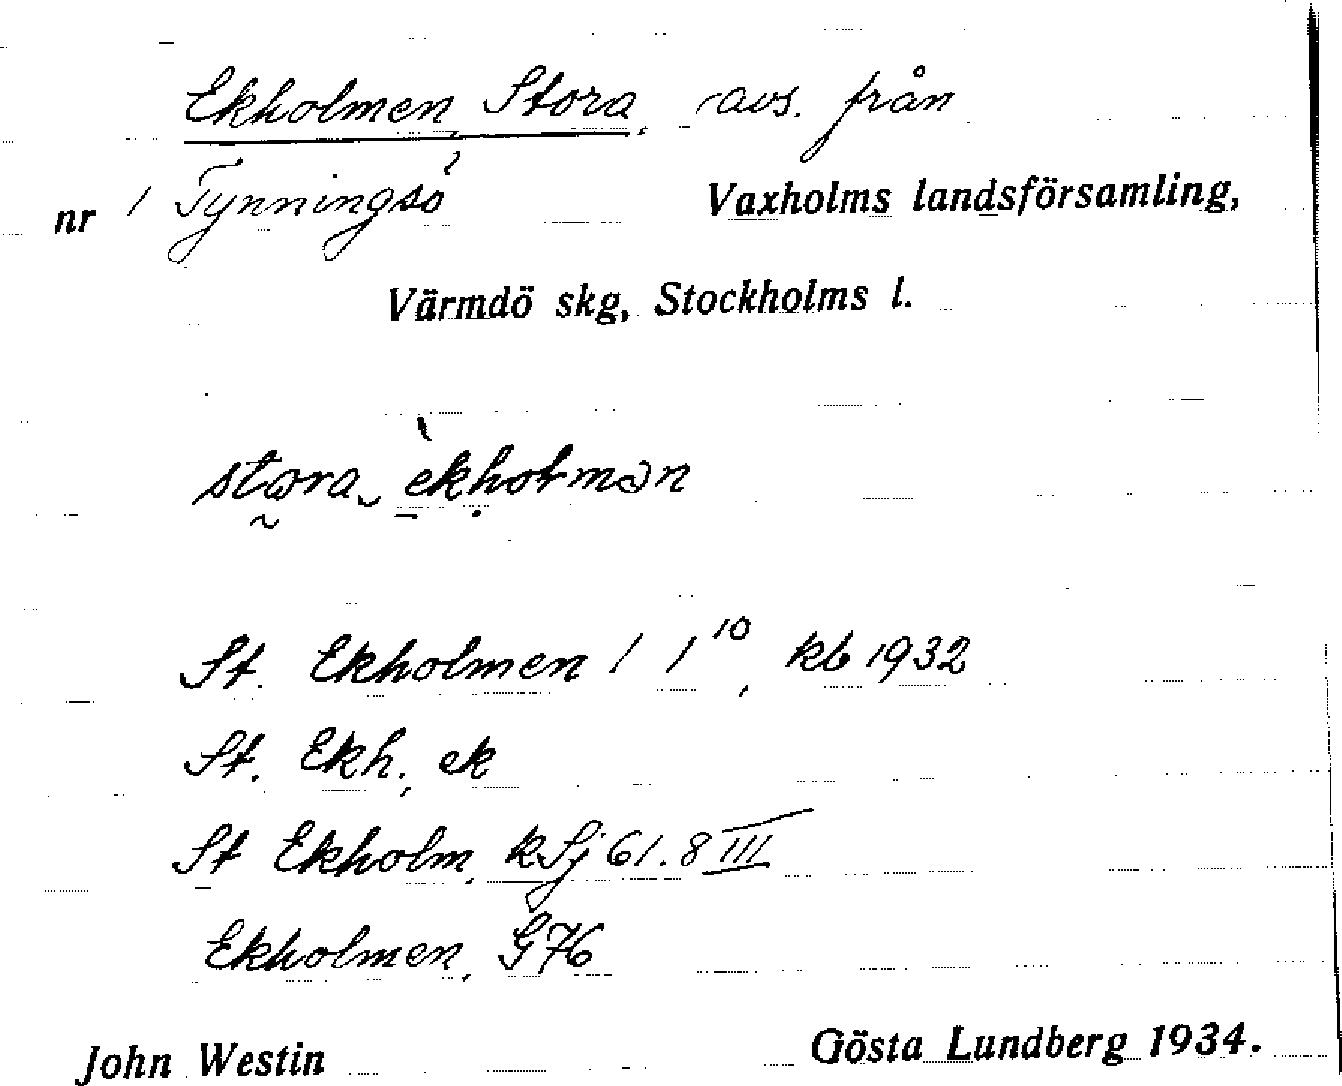 Ekholmen, Stora, avs. från
nr 1 Tynningsö Vaxholms landsförsamling,
Värmdö skg, Stockholms l.
stora èkholmən
St. Ekholmen 1 1¹⁰, kb 1932
St. Ekh., ek
St Ekholm, kSj 61.8 III
Ekholmen, G76
John Westin Gösta Lundberg 1934.